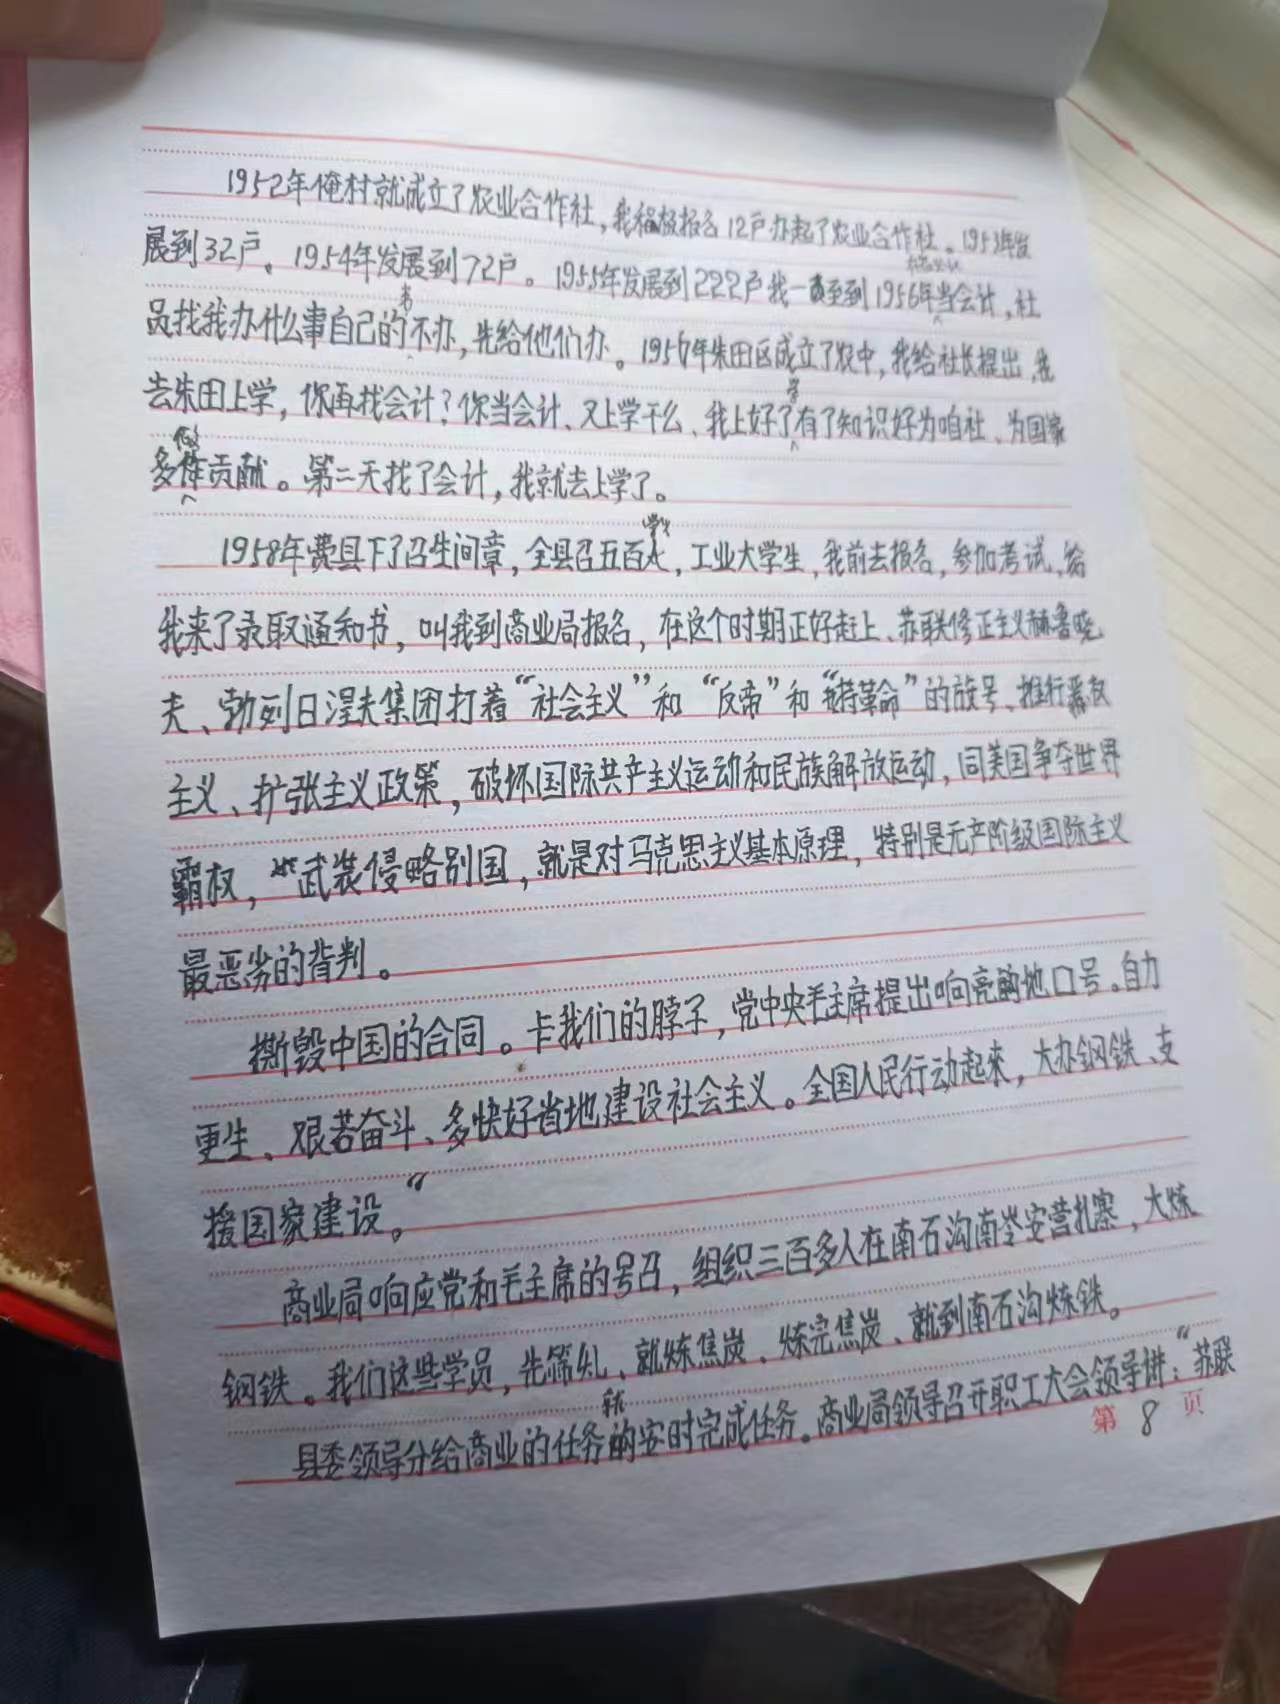 1952年俺村就成立了农业合作社，我积极报名12户办起了农业合作社。1953年发
展到32户。1954年发展到72户。1955年发展到222户我一直至到1956年当会计，社
员找我办什么事自己的不办，先给他们办。1956年朱田区成立了农中，我给社长提出，我
去朱田上学，你再找会计？你当会计、又上学干么、我上好学了有了知识好为咱社、为国家
多做贡献。第二天找了会计，我就去上学了。
1958年费县下了召生间章，全县召五百人，工业大学生，我前去报名，参加考试，给
我来了录取通知书，叫我到商业局报名，在这个时期正好赶上、苏联修正主义赫鲁晓
夫、勃列日涅夫集团打着“社会主义”和“反帝”和“支持革命”的旗号、推行霸权
主义、扩张主义政策，破坏国际共产主义运动和民族解放运动，同美国争夺世界
霸权，武装侵略别国，就是对马克思主义基本原理，特别是无产阶级国际主义
最恶劣的背判。
撕毁中国的合同。卡我们的脖子，党中央毛主席提出响亮的地口号。自力
更生、艰苦奋斗、多快好省地建设社会主义。全国人民行动起来，大办钢铁、支
援国家建设。“
商业局响应党和毛主席的号召，组织三百多人在南石沟南岺安营扎寨，大炼
钢铁。我们这些学员，先筛、就炼焦炭、炼完焦炭、就到南石沟炼铁。
县委领导分给商业的任务安时完成任务。商业局领导召开职工大会领导讲：“苏联
第8页